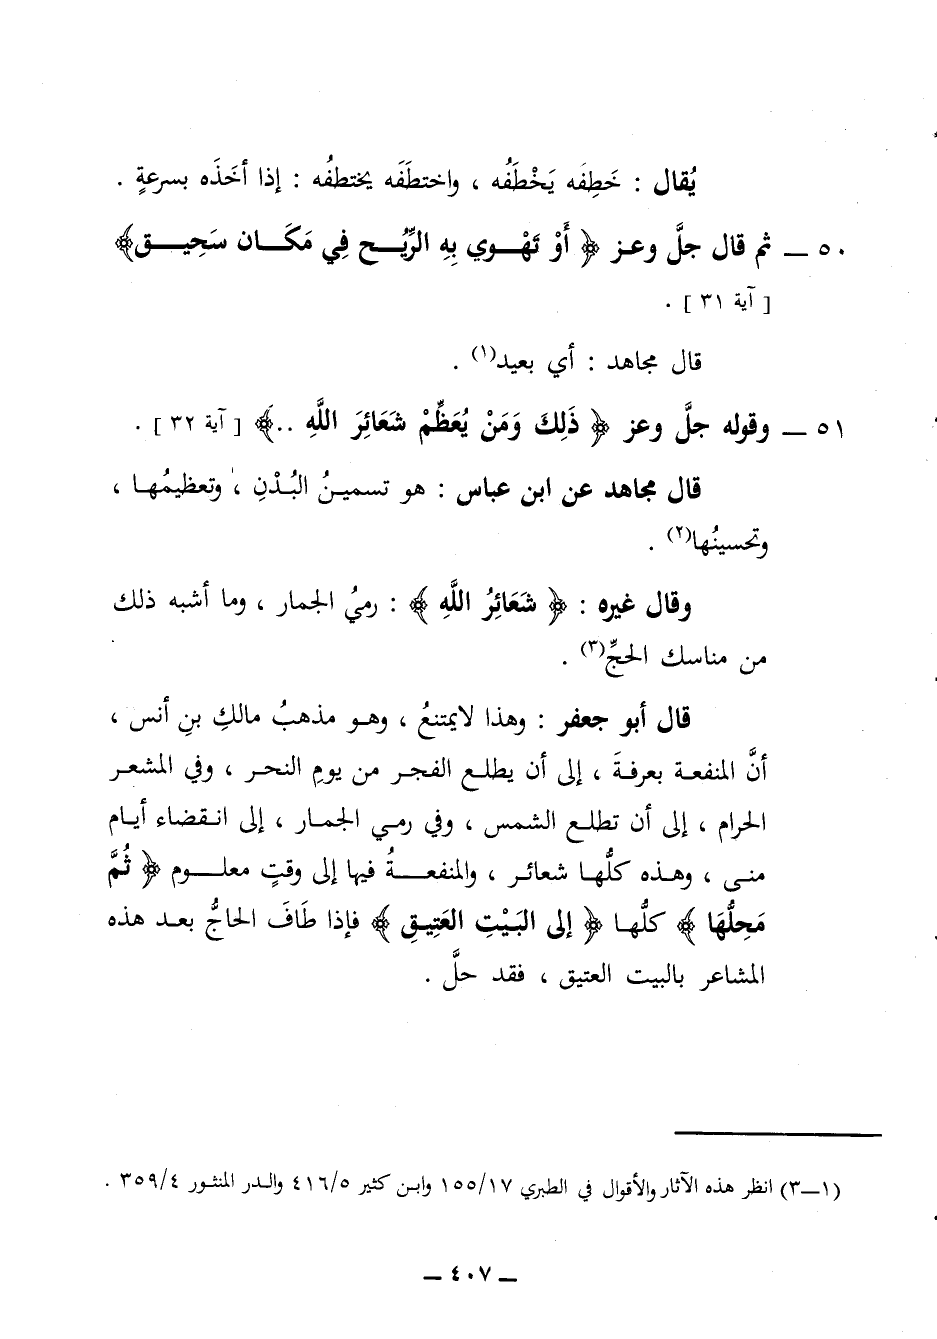 يُقال : خَطِفَه يَخْطَفُه ، واختطَفَه يختطفُه : إذا أخَذَه بسرعةٍ .
٥٠ ـ ثم قال جلَّ وعز ﴿ أَوْ تَهْوِي بِهِ الرِّيْحُ فِي مَكَانٍ سَحِيقٍ ﴾
[ آية ٣١ ] .
قال مجاهد : أي بعيد(١) .
٥١ ـ وقوله جلَّ وعز ﴿ ذَلِكَ وَمَنْ يُعَظِّمْ شَعَائِرَ اللَّهِ ..﴾ [ آية ٣٢ ] .
قال مجاهد عن ابن عباس : هو تسمينُ البُدْنِ ، وتعظيمُها ،
وتحسينُها(٢) .
وقال غيره : ﴿ شَعَائِرُ اللَّهِ ﴾ : رميُ الجمار ، وما أشبه ذلك
من مناسك الحجِّ(٣) .
قال أبو جعفر : وهذا لايمتنعُ ، وهو مذهبُ مالكِ بنِ أنس ،
أنَّ المنفعة بعرفةَ ، إلى أن يطلع الفجر من يومِ النحر ، وفي المشعر
الحرام ، إلى أن تطلع الشمس ، وفي رمي الجمار ، إلى انقضاء أيام
منى ، وهذه كلُّها شعائر ، والمنفعةُ فيها إلى وقتٍ معلوم ﴿ ثُمَّ
مَحِلُّهَا ﴾ كلُّها ﴿ إلى البَيْتِ العَتِيقِ ﴾ فإذا طَافَ الحاجُّ بعد هذه
المشاعر بالبيت العتيق ، فقد حلَّ .
(١ـ٣) انظر هذه الآثار والأقوال في الطبري ١٥٥/١٧ وابن كثير ٤١٦/٥ والدر المنثور ٣٥٩/٤ .
ـ ٤٠٧ ـ